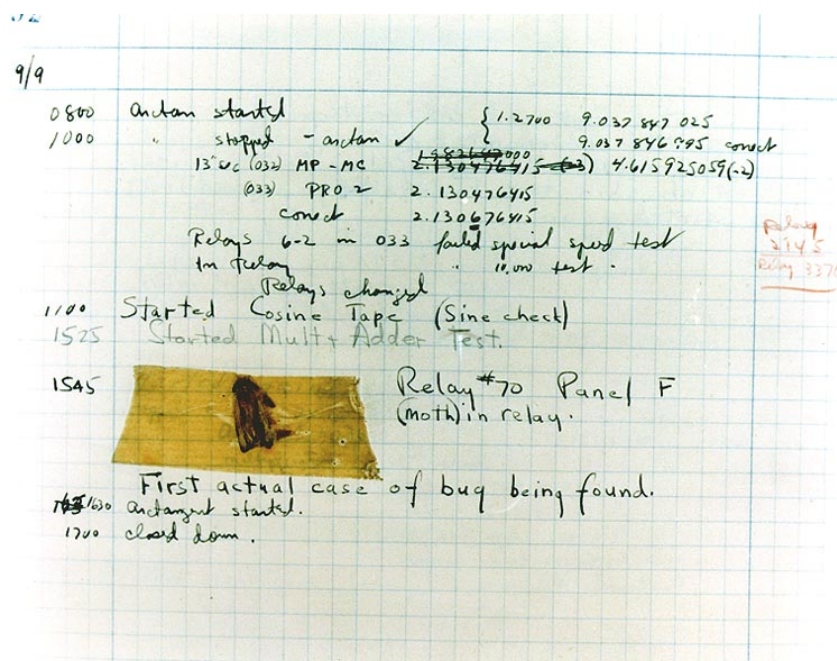 9/9
0800 arctan started { 1.2700 9.037 847 025
1000 " stopped - arctan ✓ 9.037 846 995 correct
13"uc (032) MP - MC 2.130476415 (-3) 4.615925059(-2)
(033) PRO 2 2.130476415
correct 2.130676415
Relays 6-2 in 033 failed special speed test
In Relay " 10.000 test .
Relay
2145
Relay 3370
Relays changed
1100 Started Cosine Tape (Sine check)
1525 Started Mult + Adder Test.
1545 Relay #70 Panel F
(moth) in relay.
First actual case of bug being found.
1630 arctangent started.
1700 closed down.